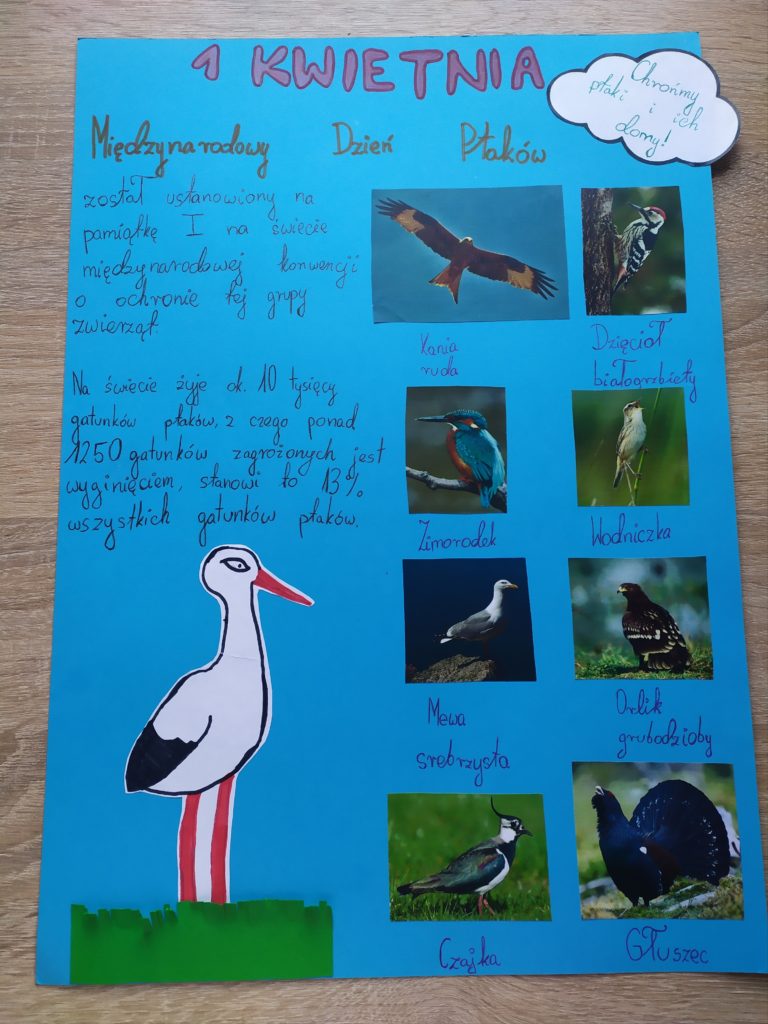 1 KWIETNIA
Chrońmy
ptaki i ich
domy!
Międzynarodowy Dzień Ptaków
został ustanowiony na
pamiątkę I na świecie
międzynarodowej konwencji
o ochronie tej grupy
zwierząt.
Na świecie żyje ok. 10 tysięcy
gatunków ptaków, z czego ponad
1250 gatunków zagrożonych jest
wyginięciem, stanowi to 13%
wszystkich gatunków ptaków.
Kania
ruda
Dzięcioł
białogrzbiety
Zimorodek
Wodniczka
Mewa
srebrzysta
Orlik
grubodzioby
Czajka
Głuszec